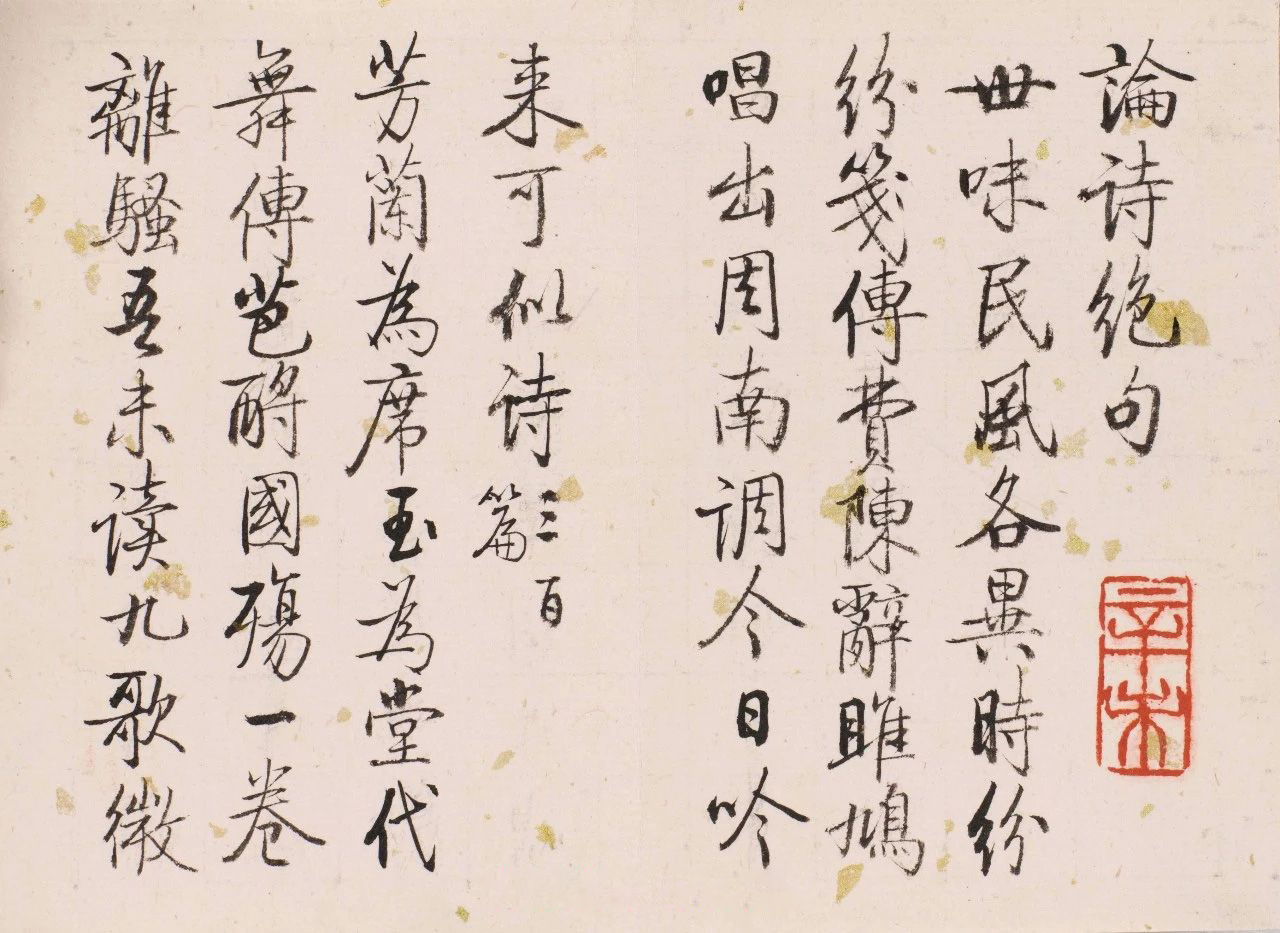 論诗绝句
世味民風各異時纷
纷笺傳費陳辭雎鳩
唱出周南调今日吟
来可似诗三百篇
芳蘭為席玉為堂代
舞傳芭酹國殤一卷
離騷吾未读九歌微
辛未